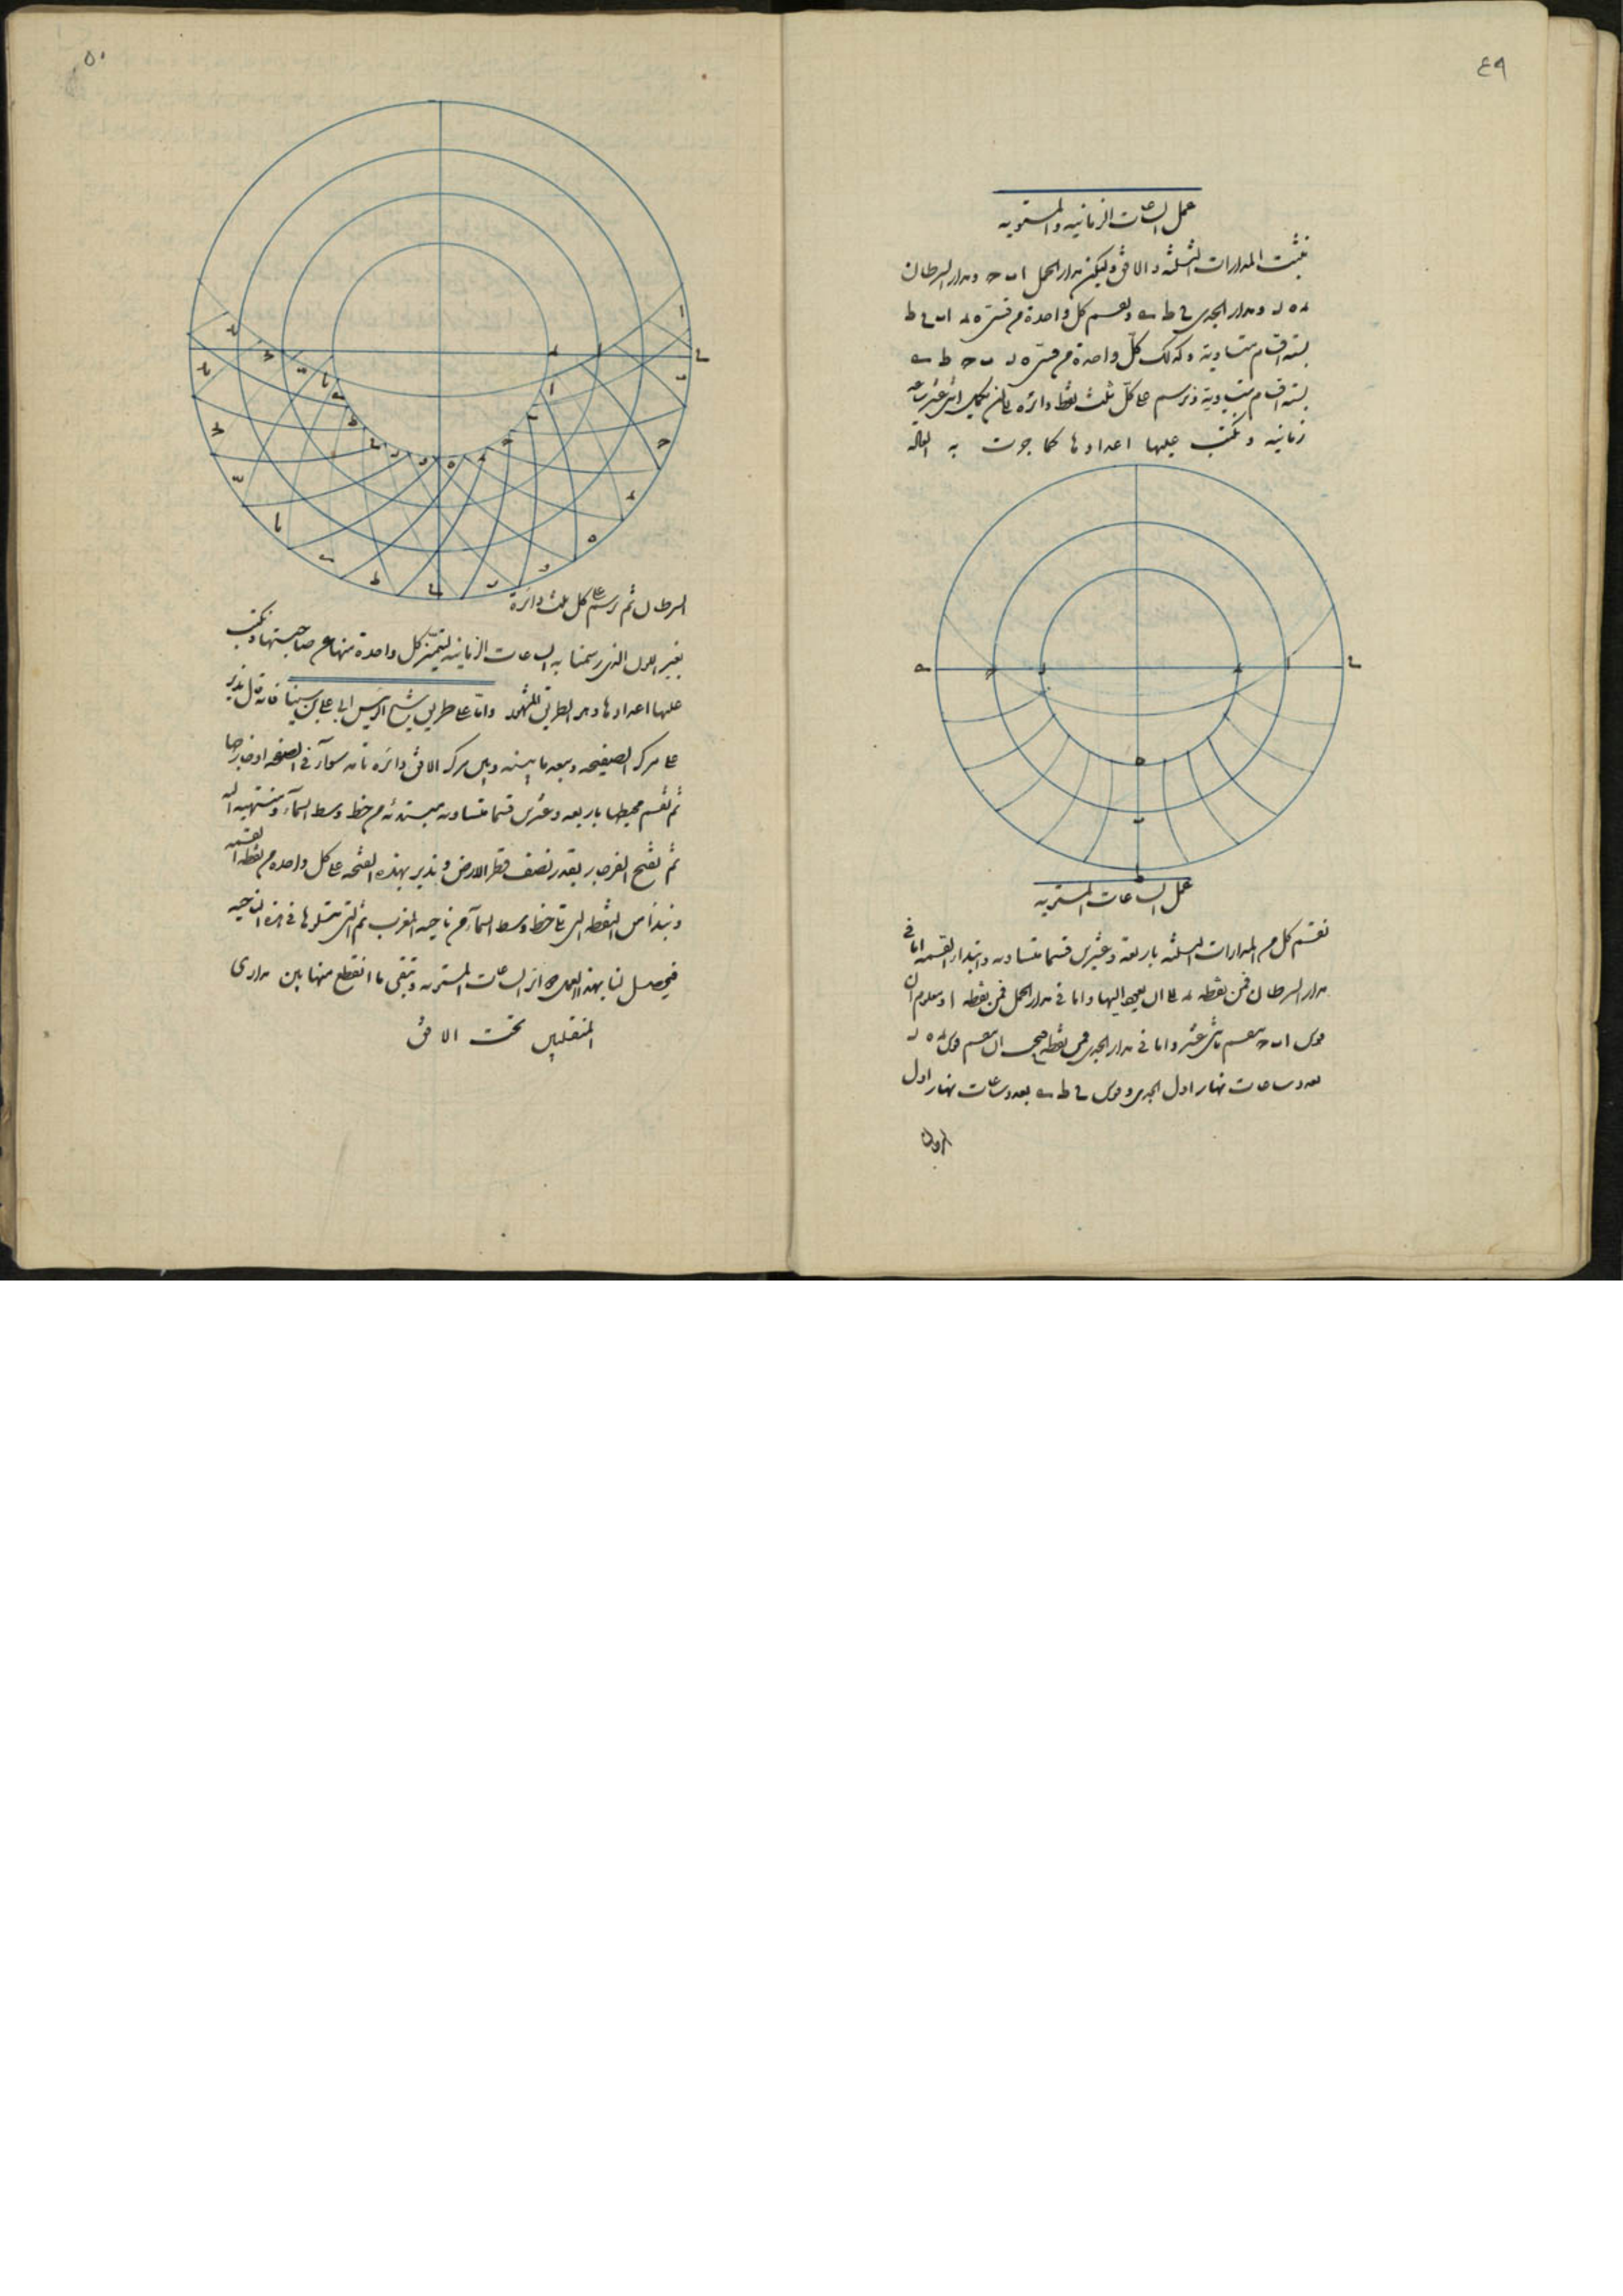 ٤٩
عمل الساعات الزمانيه والمستويه
نثبت المدارات الثلثه والافق وليكن مدار الحمل ا ب ح ومدار السرطان
ء ه ر ومدار الجدى ح ط ى ونقسم كل واحدة من قسى ه ء ا ب ح ط
بسته اقسام متساوية وكذلك كل واحدة من قسى ه ر ب ح ط ى
بسته اقسام متساوية ونرسم على كل ثلث نقط دائره
زمانيه ونكتب عليها اعدادها كما جرت به العاده
ا
ح
ء
ر
ح
ى
ه
ب
ط
عمل الساعات المستويه
نقسم كل من المدارات الثلثه باربعة وعشرين قسما متساويه وابتداء القسمه اما فى
مدار السرطان فمن نقطه ء الى ان يعود اليها واما فى مدار الحمل فمن نقطه ا ومعلوم ان
قوس ا ب ح ينقسم باثنى عشر واما فى مدار الجدى فمن نقطه ح ان ينقسم قوس ء ه ر
بعدد ساعات نهار اول الجدى وقوس ح ط ى بعدد ساعات نهار اول
السرطان
٥٠
السرطان ثم نرسم على كل ثلث دائرة
بغير اللون الذى رسمنا به الساعات الزمانيه لتتميز كل واحدة منها عن صاحبتها ونكتب
عليها اعدادها وهو الطريق المشهور واما على طريق الشيخ الرئيس ابى على بن سينا فانه قال ندير
على مركز الصفيحه وببعد ما بينه وبين مركز الافق دائره تامه سواء فى الصفيحه او خارجها
ثم نقسم محيطها باربعه وعشرين قسما متساويه مبتدئه من خط وسط السماء ومنتهيه اليه
ثم نفتح الفرجار بقدر نصف قطر الارض وندير بهذه الفتحه على كل واحده من نقط القسمه
ونبدأ من النقطه التى تلى خط وسط السماء من ناحيه المغرب ثم التى تتلوها فى هذه الناحيه
فيحصل لنا بهذا العمل دوائر الساعات المستويه ويبقى ما انقطع منها بين مدارى
المنقلبين تحت الافق